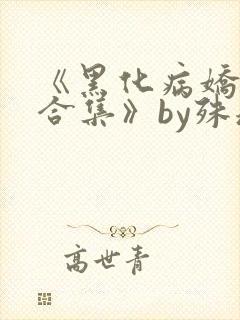 《黑化病嬌
合集》by殊
高世青